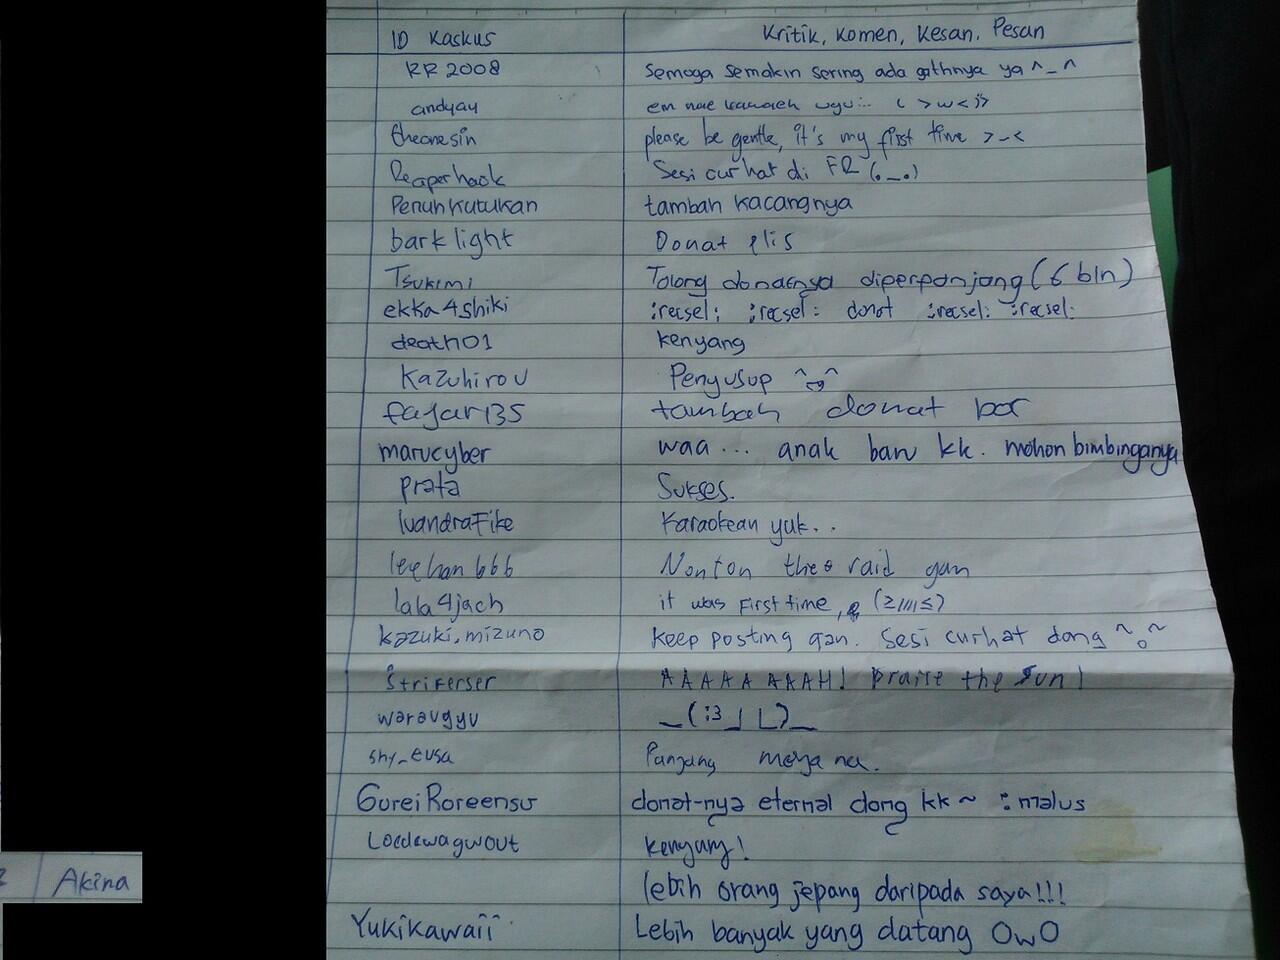 ID Kaskus Kritik, Komen, Kesan, Pesan
RR2008 Semoga semakin sering ada gathnya ya ^_^
andyay em nae kawaeh uyu... ( >w< )
theonesin please be gentle, it's my first time >-<
Reaperhack Sesi curhat di FR (._.)
PenuhKutukan tambah kacangnya
barklight Donat plis
Tsukimi Tolong donatnya diperpanjang (6 bln)
ekka4shiki :recsel: :recsel: donat :recsel: :recsel:
death01 kenyang
Kazuhirou Penyusup
fajar135 tambah donat bor
marucyber waa... anak baru kk. mohon bimbinganya
prata Sukses.
IvandraFike Karaokean yuk..
leehan666 Nonton the raid gan
lala4jach it was first time, (≥////≤)
kazuki.mizuno keep posting gan. Sesi curhat dong ~o~
Striferser AAAAA AAAH! Praise the Sun!
waraugyu _(:3」∟)_
shy_eusa Panjang mejana.
GureiRoreensu donat-nya eternal dong kk~ :malus
Loedewagwout kenyang!
Akina lebih orang jepang daripada saya!!!
Yukikawaii Lebih banyak yang datang OwO